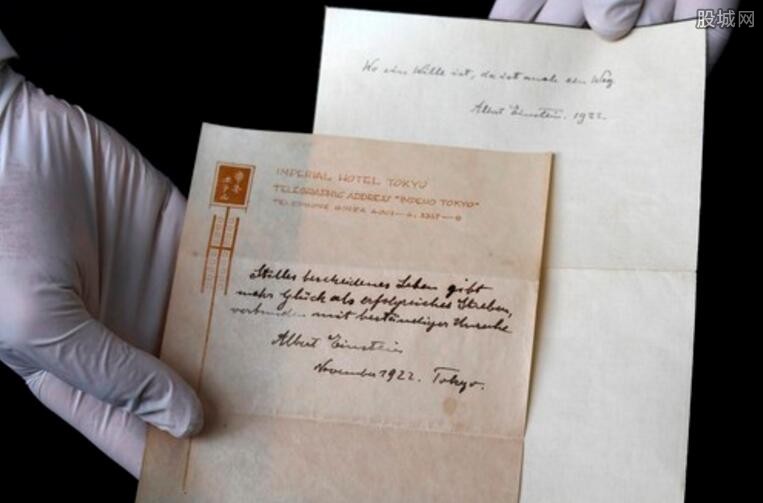 股城网
Wo ein Wille ist, da ist auch ein Weg
Albert Einstein. 1922.
帝国
ホテル
IMPERIAL HOTEL TOKYO
TELEGRAPHIC ADDRESS "IMPEHO TOKYO"
TELEPHONE GINZA
Stilles bescheidenes Leben gibt
mehr Glück als erfolgreiches Streben,
verbunden mit beständiger Unruhe
Albert Einstein
November 1922. Tokyo.